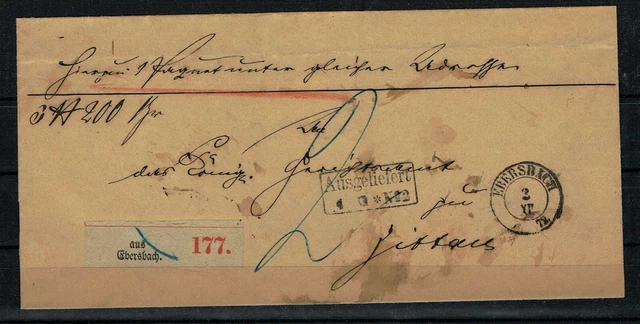 Hierzu 1 Paquet unter gleicher Adresse
3 ℔ 200 Gr
An
das König. Gerichtsamt
zu
Zittau
2
Ausgeliefert
№2
EBERSBACH
3
XI
72
aus
Ebersbach.
177.